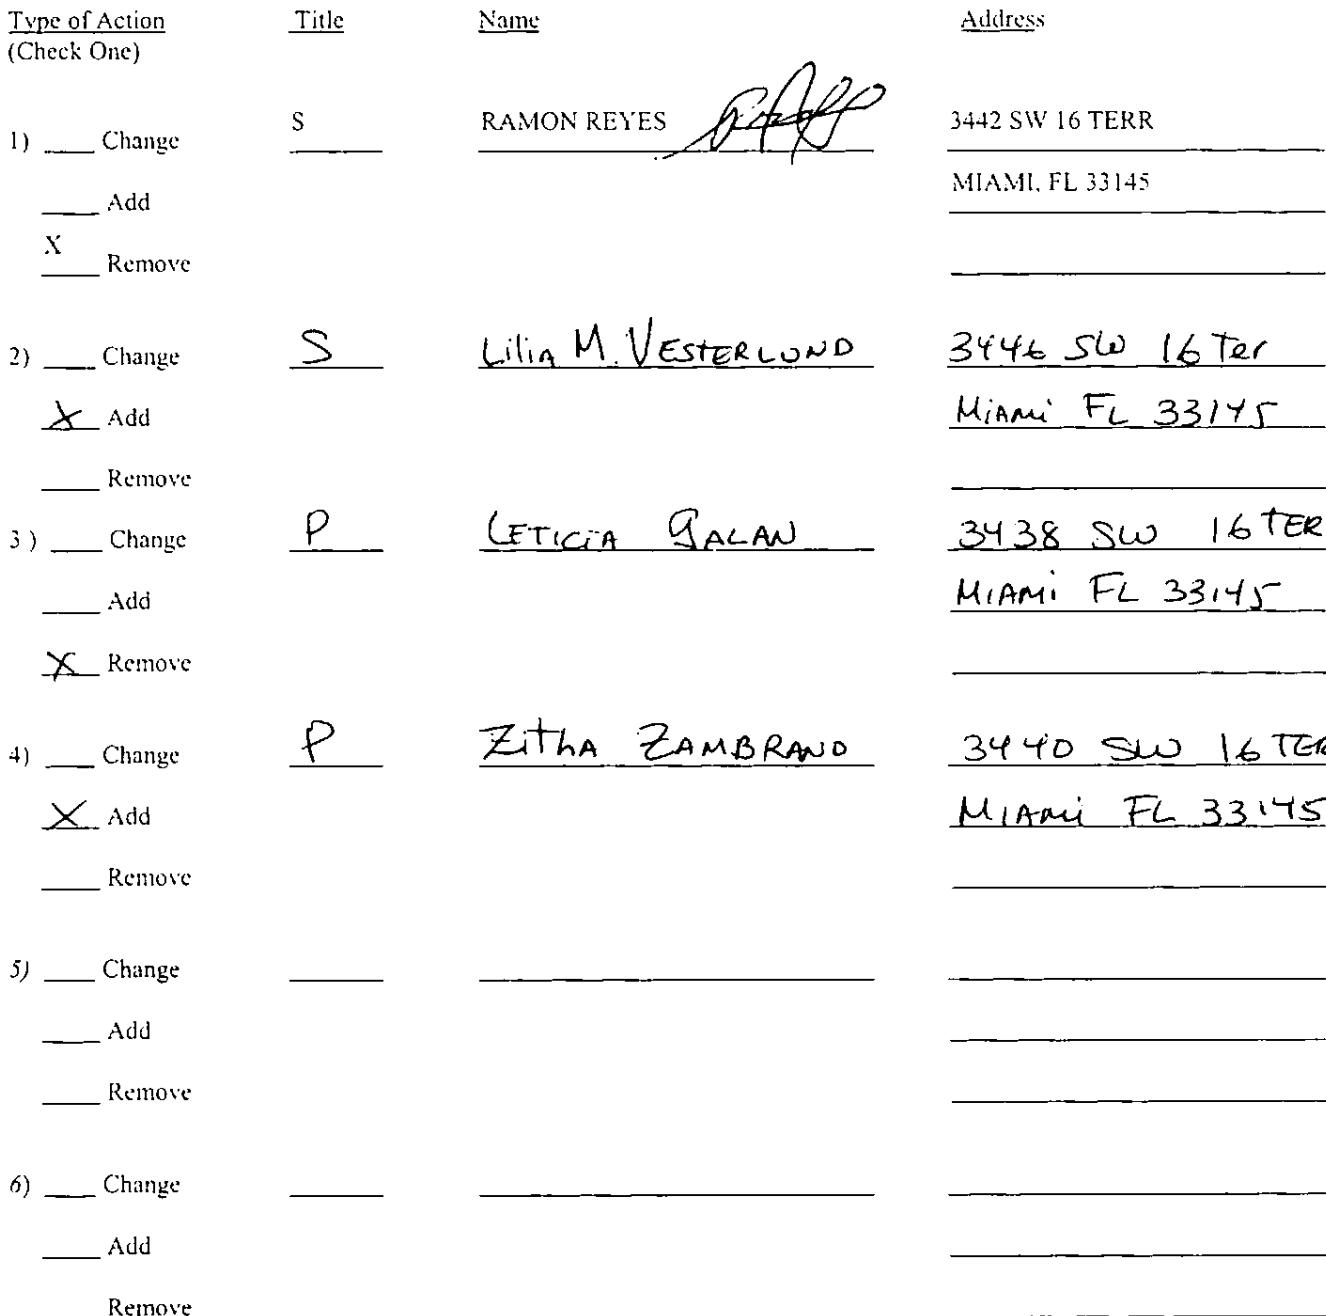 Type of Action Title Name Address
(Check One)
1) ____ Change S RAMON REYES 3442 SW 16 TERR
____ Add MIAMI, FL 33145
X Remove
2) ____ Change S Lilia M. VESTERLUND 3446 SW 16 Ter
X Add Miami FL 33145
____ Remove
3) ____ Change P LETICIA GALAN 3438 SW 16 TER
____ Add MIAMI FL 33145
X Remove
4) ____ Change P ZithA ZAMBRANO 3440 SW 16 TER
X Add MIAMI FL 33145
____ Remove
5) ____ Change
____ Add
____ Remove
6) ____ Change
____ Add
Remove